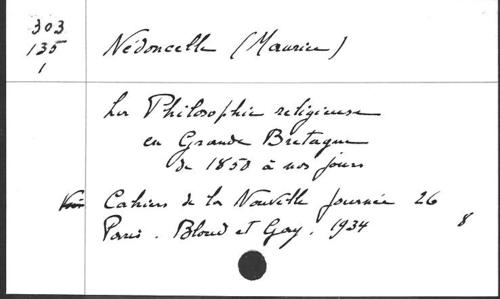 303
135
1
Nédoncelle (Maurice)
La Philosophie religieuse
en Grande Bretagne
de 1850 à nos jours
Voir Cahiers de la Nouvelle Journée 26
Paris. Bloud et Gay. 1934
8